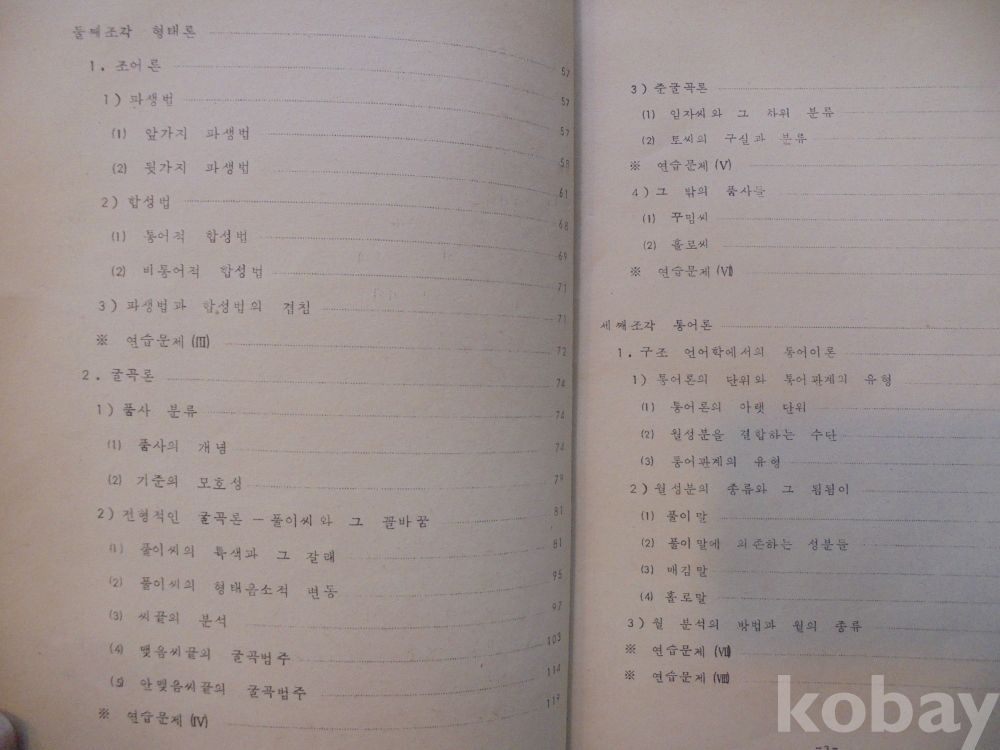 둘째조각 형태론 57
1. 조어론 57
1) 파생법 57
(1) 앞가지 파생법 58
(2) 뒷가지 파생법 61
2) 합성법 68
(1) 통어적 합성법 69
(2) 비통어적 합성법 71
3) 파생법과 합성법의 겹침 71
※ 연습문제 (Ⅲ) 72
2. 굴곡론 74
1) 품사 분류 74
(1) 품사의 개념 74
(2) 기준의 모호성 79
2) 전형적인 굴곡론 - 풀이씨와 그 꼴바꿈 81
(1) 풀이씨의 특색과 그 갈래 81
(2) 풀이씨의 형태음소적 변동 95
(3) 씨끝의 분석 97
(4) 맺음씨끝의 굴곡범주 103
(5) 안맺음씨끝의 굴곡범주 114
※ 연습문제 (Ⅳ) 119
3) 준굴곡론
(1) 임자씨와 그 하위 분류
(2) 토씨의 구실과 분류
※ 연습문제 (Ⅴ)
4) 그 밖의 품사들
(1) 꾸밈씨
(2) 홀로씨
※ 연습문제 (Ⅵ)
세째조각 통어론
1. 구조 언어학에서의 통어이론
1) 통어론의 단위와 통어관계의 유형
(1) 통어론의 아랫 단위
(2) 월성분을 결합하는 수단
(3) 통어관계의 유형
2) 월성분의 종류와 그 됨됨이
(1) 풀이말
(2) 풀이말에 의존하는 성분들
(3) 매김말
(4) 홀로말
3) 월 분석의 방법과 월의 종류
※ 연습문제 (Ⅶ)
※ 연습문제 (Ⅷ)
-3-
kobay